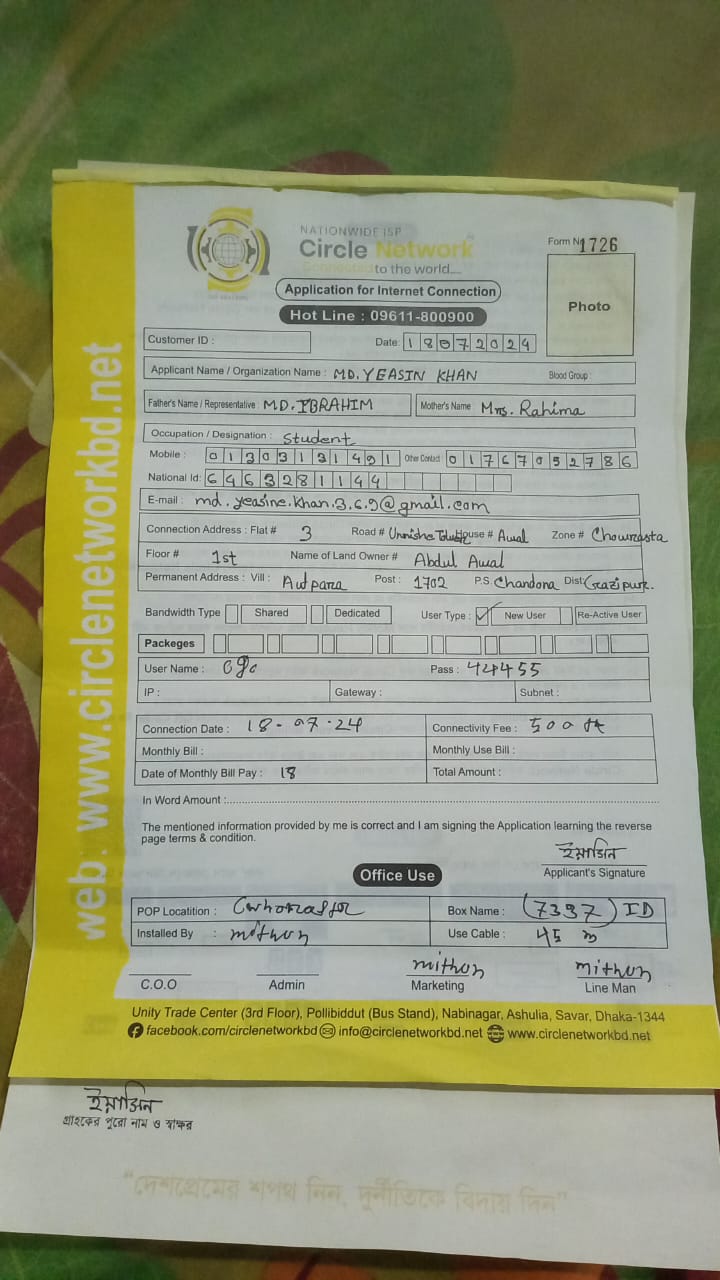 NATIONWIDE ISP
Circle Network
Connected to the world....
Application for Internet Connection
Hot Line : 09611-800900
Form N 1726
Photo
Customer ID :
Date: 18072024
Applicant Name / Organization Name : MD. YEASIN KHAN Blood Group :
Father's Name / Representative MD. IBRAHIM Mother's Name Mrs. Rahima
Occupation / Designation : Student
Mobile : 01303131491 Other Contact 01767052786
National Id: 6463281144
E-mail : md.yeasine.khan.3.6.9@gmail.com
Connection Address : Flat # 3 Road # Unnishe House # Awal Zone # Chowrasta
Floor # 1st Name of Land Owner # Abdul Awal
Permanent Address : Vill : Autpara Post : 1702 P.S. Chandona Dist: Gazipur.
Bandwidth Type Shared Dedicated User Type : ✓ New User Re-Active User
Packeges
User Name : Pass : 44455
IP : Gateway : Subnet :
Connection Date : 18-07-24 Connectivity Fee : 500
Monthly Bill : Monthly Use Bill :
Date of Monthly Bill Pay : 18 Total Amount :
In Word Amount :
The mentioned information provided by me is correct and I am signing the Application learning the reverse
page terms & condition.
ইয়াসিন
Applicant's Signature
Office Use
POP Locatition : Box Name : (7397) ID
Installed By : mithun Use Cable : 45 m
mithun mithun
C.O.O Admin Marketing Line Man
Unity Trade Center (3rd Floor), Pollibiddut (Bus Stand), Nabinagar, Ashulia, Savar, Dhaka-1344
facebook.com/circlenetworkbd info@circlenetworkbd.net www.circlenetworkbd.net
web: www.circlenetworkbd.net
ইয়াসিন
গ্রাহকের পুরো নাম ও স্বাক্ষর
"দেশপ্রেমের শপথ নিন, দুর্নীতিকে বিদায় দিন"